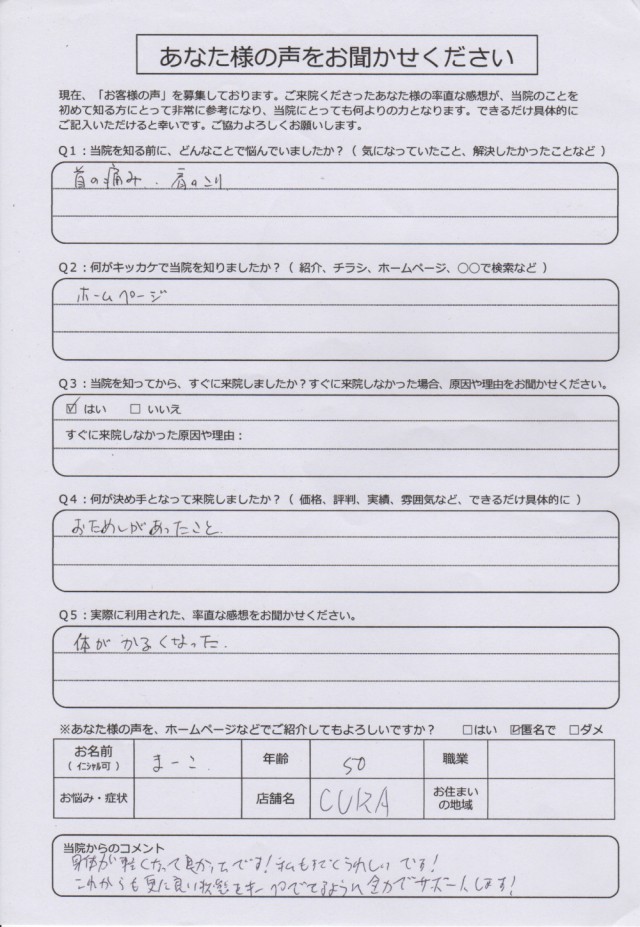 あなた様の声をお聞かせください
現在、「お客様の声」を募集しております。ご来院くださったあなた様の率直な感想が、当院のことを
初めて知る方にとって非常に参考になり、当院にとっても何よりの力となります。できるだけ具体的に
ご記入いただけると幸いです。ご協力よろしくお願いします。
Q1：当院を知る前に、どんなことで悩んでいましたか？（ 気になっていたこと、解決したかったことなど ）
首の痛み、肩のこり
Q2：何がキッカケで当院を知りましたか？（ 紹介、チラシ、ホームページ、○○で検索など ）
ホームページ
Q3：当院を知ってから、すぐに来院しましたか？すぐに来院しなかった場合、原因や理由をお聞かせください。
☑ はい □ いいえ
すぐに来院しなかった原因や理由：
Q4：何が決め手となって来院しましたか？（ 価格、評判、実績、雰囲気など、できるだけ具体的に ）
おためしがあったこと
Q5：実際に利用された、率直な感想をお聞かせください。
体が かるくなった.
※あなた様の声を、ホームページなどでご紹介してもよろしいですか？ □はい ☑匿名で □ダメ
お名前 （ イニシャル可 ） まーこ 年齢 50 職業
お悩み・症状 店舗名 CURA お住まいの地域
当院からのコメント
身体が軽くなって良かったです！私もすごくうれしいです！
これからも更に良い状態をキープできるように全力でサポートします！